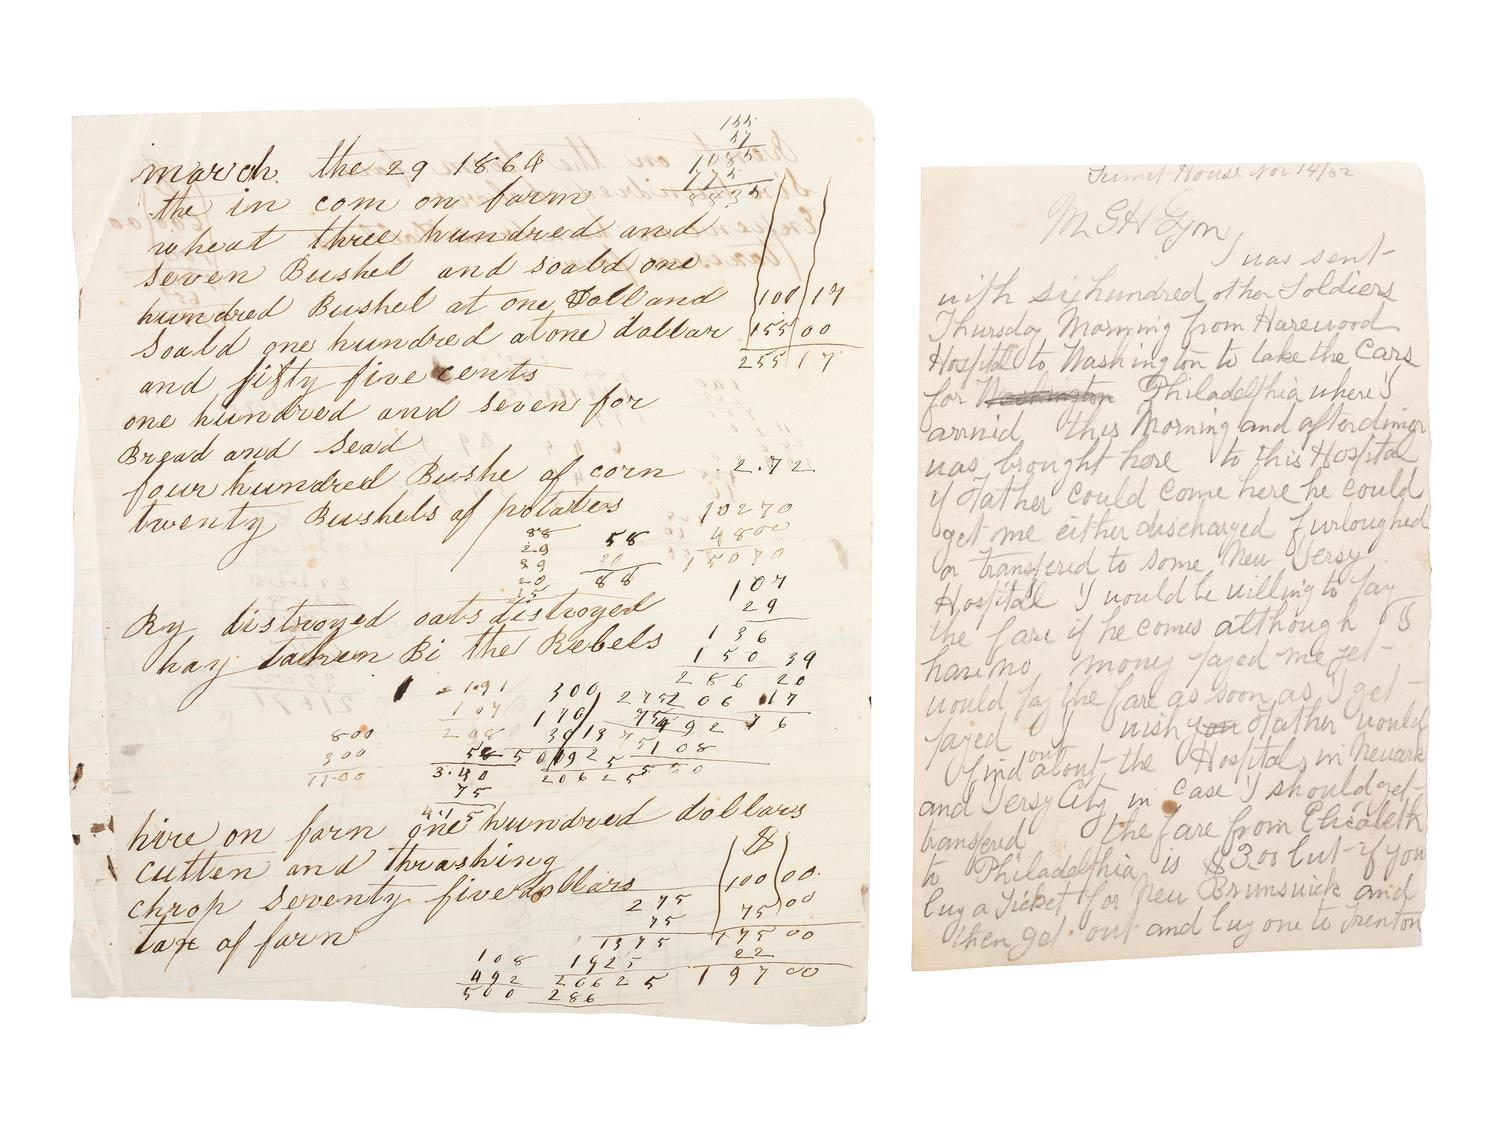 march. the 29 1864
the in com on farm
wheat three hundred and
seven Bushel and soald one
hundred Bushel at one Doll and
Soald one hundred at one dollar
and fifty five cents
one hundred and seven for
Bread and Sead
four hundred Bushe of corn
twenty Bushels of potators
155
57
1085
775
8835
100 17
155 00
255 17
2.72
10270
4800
15070
88
29
39
20
15
58
30
88
107
29
136
150 39
286 20
206 17
492 76
Ry distroyed oats distroyed
hay taken Bi the Rebels
191
107
298
58
3.40
75
4.15
300
170
800
300
1100
20625
5108
hire on farn one hundred dollars
cutten and thrashing
chrop seventy five dollars
tax of farn
$
100 00
75 00
175 00
22
197 00
275
75
1375
1925
20625
286
108
492
500
Sumit House Nov 14/62
M G H Gyon
I was sent
with six hundred other Soldiers
Thursday Morning from Harewood
Hospital to Washington to take the Cars
for Washington Philadelphia where I
arrivid this Morning and after dinner
was brought here to this Hospital
if Father could come here he could
get me either discharged furloughed
or transfered to some New Jersy
Hospital I would be willing to pay
the fare if he comes although I
have no mony payed me yet
would pay the fare as soon as I get
payed I wish you Father would
find out about the Hospitals in Newark
and Jersy City in case I should get
transfered the fare from Elizabeth
to Philadelphia is $3.00 but if you
buy a Ticket for New Brunswick and
then get out and buy one to Trenton